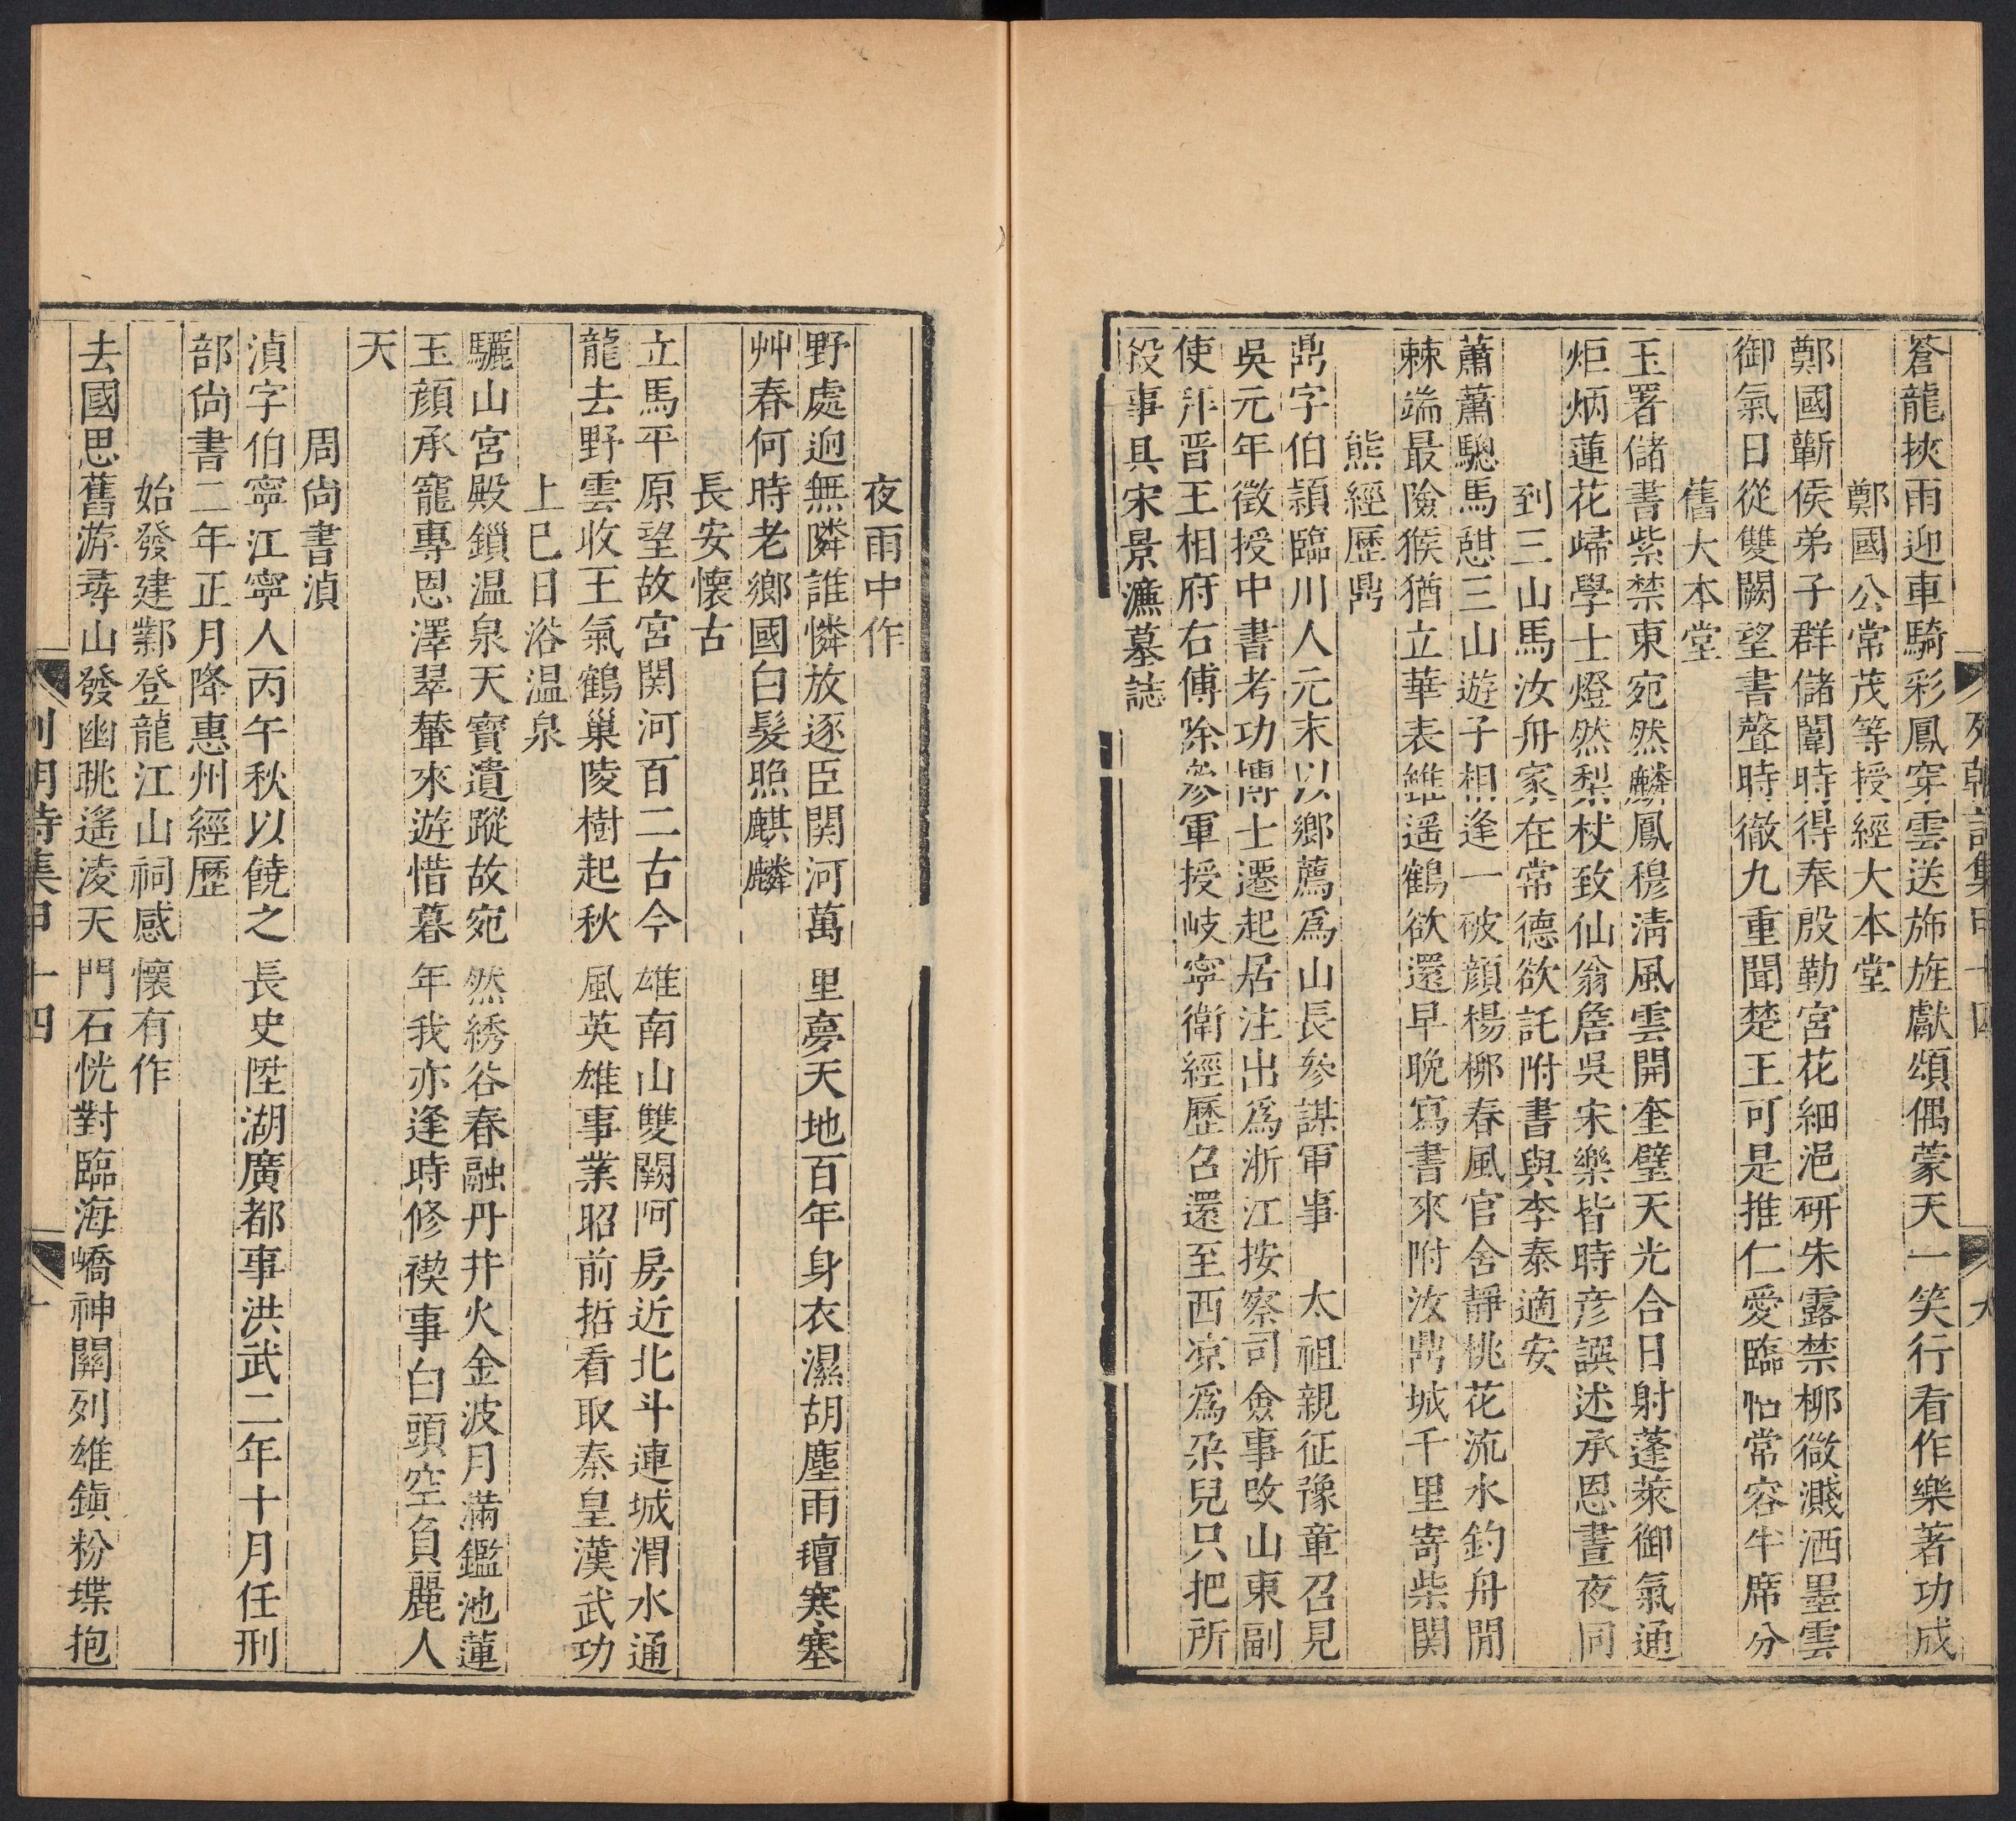 列朝詩集甲十四
九
蒼龍挾雨迎車騎彩鳳穿雲送旆旌獻頌偶蒙天一笑行看作樂著功成
鄭國公常茂等授經大本堂
鄭國蘄侯弟子群儲闈時得奉殷勤宮花細浥研朱露禁柳微濺洒墨雲
御氣日從雙闕望書聲時徹九重聞楚王可是推仁愛臨帖常容半席分
舊大本堂
玉署儲書紫禁東宛然麟鳳穆清風雲開奎璧天光合日射蓬萊御氣通
炬炳蓮花歸學士燈然梨杖致仙翁詹吳宋樂皆時彦譔述承恩晝夜同
到三山馬汝舟家在常德欲託附書與李泰適安
蕭蕭驄馬憇三山遊子相逢一破顔楊栁春風官舍靜桃花流水釣舟閒
棘端最險猴猶立華表雖遥鶴欲還早晚寫書來附汝鼎城千里寄柴関
熊經歷鼎
鼎字伯潁臨川人元末以鄉薦爲山長叅謀軍事　太祖親征豫章召見
吳元年徵授中書考功博士遷起居注出爲浙江按察司僉事改山東副
使拜晋王相府右傅除叅軍授岐寧衛經歷召還至西凉爲朶兒只把所
殺事具宋景濂墓誌
夜雨中作
野處逈無隣誰憐放逐臣関河萬里夢天地百年身衣濕胡塵雨氊寒塞
艸春何時老鄉國白髮照麒麟
長安懷古
立馬平原望故宮関河百二古今雄南山雙闕阿房近北斗連城渭水通
龍去野雲收王氣鶴巢陵樹起秋風英雄事業昭前哲看取秦皇漢武功
上巳日浴温泉
驪山宮殿鎖温泉天寶遺蹤故宛然綉谷春融丹井火金波月滿鑑池蓮
玉顔承寵專恩澤翠輦來遊惜暮年我亦逢時修禊事白頭空負麗人
天
周尚書湞
湞字伯寧江寧人丙午秋以饒之長史陞湖廣都事洪武二年十月任刑
部尚書二年正月降惠州經歷
始發建鄴登龍江山祠感懷有作
去國思舊游尋山發幽眺遙淩天門石恍對臨海嶠神關列雄鎭粉堞抱
列朝詩集甲十四
十